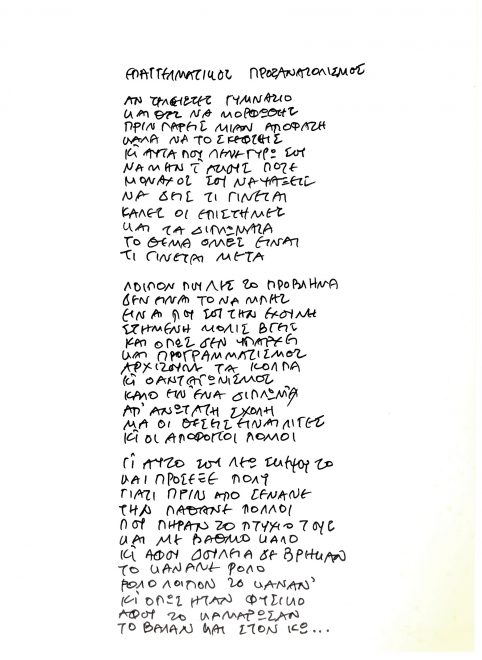 ΕΠΑΓΓΕΛΜΑΤΙΚΟΣ ΠΡΟΣΑΝΑΤΟΛΙΣΜΟΣ
ΑΝ ΤΕΛΕΙΩΣΕΣ ΓΥΜΝΑΣΙΟ
ΚΑΙ ΘΕΣ ΝΑ ΜΟΡΦΩΘΗΣ
ΠΡΙΝ ΠΑΡΕΙΣ ΜΙΑΝ ΑΠΟΦΑΣΗ
ΚΑΛΑ ΝΑ ΤΟ ΣΚΕΦΘΗΣ
ΚΙ ΑΥΤΑ ΠΟΥ ΛΕΝΕ ΓΥΡΩ ΣΟΥ
ΝΑ ΜΑΝ Τ' ΑΚΟΥΣ ΠΟΤΕ
ΜΟΝΑΧΟΣ ΣΟΥ ΝΑ ΨΑΞΕΙΣ
ΝΑ ΔΕΙΣ ΤΙ ΓΙΝΕΤΑΙ
ΚΑΛΕΣ ΟΙ ΕΠΙΣΤΗΜΕΣ
ΚΑΙ ΤΑ ΔΙΠΛΩΜΑΤΑ
ΤΟ ΘΕΜΑ ΟΜΩΣ ΕΙΝΑΙ
ΤΙ ΓΙΝΕΤΑΙ ΜΕΤΑ
ΛΟΙΠΟΝ ΠΟΥ ΛΕΣ ΤΟ ΠΡΟΒΛΗΜΑ
ΔΕΝ ΕΙΝΑΙ ΤΟ ΝΑ ΜΠΗΣ
ΕΙΝΑΙ ΠΟΥ ΣΟΥ ΤΗΝ ΕΧΟΥΝΕ
ΣΤΗΜΕΝΗ ΜΟΛΙΣ ΒΓΕΙΣ
ΚΑΙ ΟΠΩΣ ΔΕΝ ΥΠΑΡΧΕΙ
ΚΑΙ ΠΡΟΓΡΑΜΜΑΤΙΣΜΟΣ
ΑΡΧΙΖΟΥΝΕ ΤΑ ΚΟΛΠΑ
ΚΙ Ο ΑΝΤΑΓΩΝΙΣΜΟΣ
ΚΑΛΟ ΕΙΝ' ΕΝΑ ΔΙΠΛΩΜΑ
ΑΠ' ΑΝΩΤΑΤΗ ΣΧΟΛΗ
ΜΑ ΟΙ ΘΕΣΕΙΣ ΕΙΝΑΙ ΛΙΓΕΣ
ΚΙ ΟΙ ΑΠΟΦΟΙΤΟΙ ΠΟΛΛΟΙ
ΓΙ ΑΥΤΟ ΣΟΥ ΛΕΩ ΣΚΕΨΟΥ ΤΟ
ΚΑΙ ΠΡΟΣΕΞΕ ΠΟΛΥ
ΓΙΑΤΙ ΠΡΙΝ ΑΠΟ ΣΕΝΑΝΕ
ΤΗΝ ΠΑΘΑΝΕ ΠΟΛΛΟΙ
ΠΟΥ ΠΗΡΑΝ ΤΟ ΠΤΥΧΙΟ ΤΟΥΣ
ΚΑΙ ΜΕ ΒΑΘΜΟ ΚΑΛΟ
ΚΙ ΑΦΟΥ ΔΟΥΛΕΙΑ ΔΕ ΒΡΗΚΑΝ
ΤΟ ΚΑΝΑΝΕ ΡΟΛΟ
ΡΟΛΟ ΛΟΙΠΟΝ ΤΟ ΚΑΝΑΝ'
ΚΙ ΟΠΩΣ ΗΤΑΝ ΦΥΣΙΚΟ
ΑΦΟΥ ΤΟ ΚΑΜΑΡΩΣΑΝ
ΤΟ ΒΑΛΑΝ ΚΑΙ ΣΤΟΝ ΚΩ...